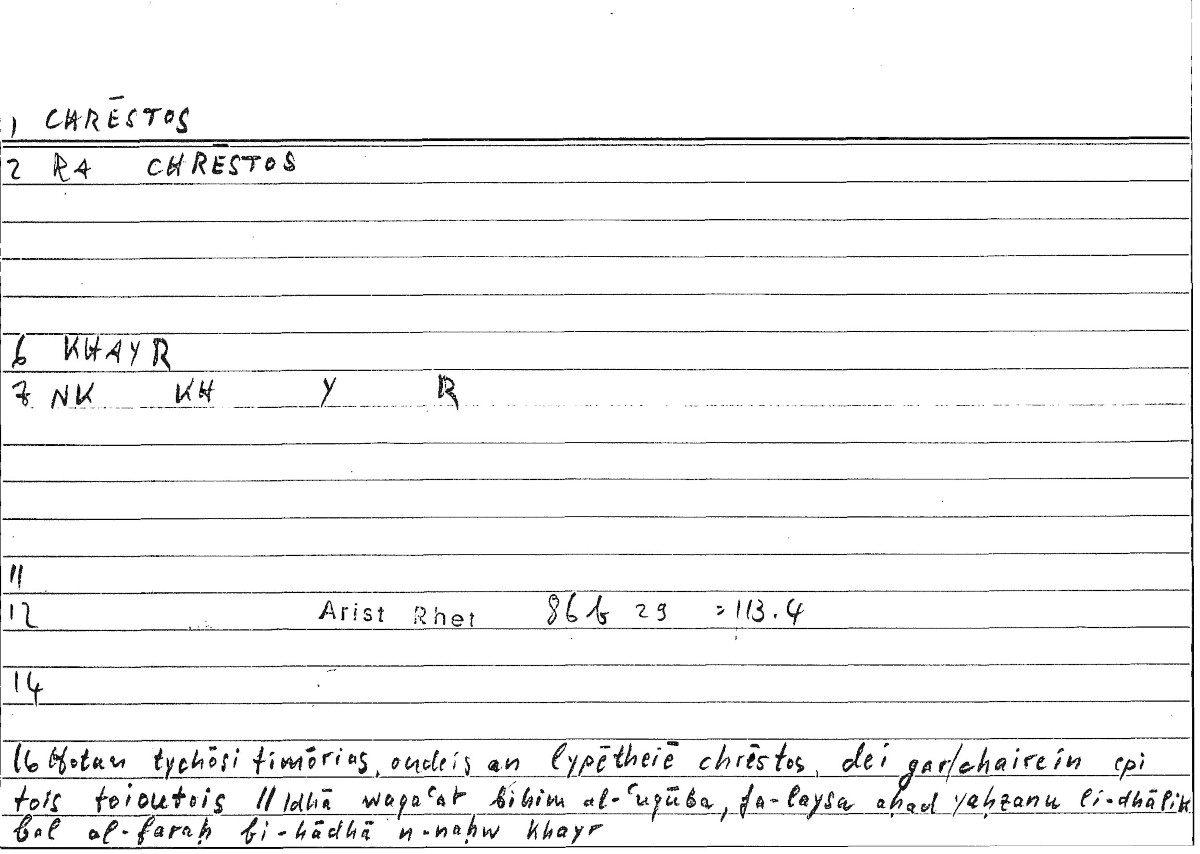 1 CHRĒSTOS
2 RA CHRĒSTOS
6 KHAYR
7 NK KH Y R
11
12 Arist Rhet 86b 29 = 113.4
14
16 Hotan tychōsi timōrias, oudeis an lypētheiē chrēstos, dei gar/chairein epi
tois toioutois // Idhā waqaʿat bihim al-ʿuqūba, fa-laysa aḥad yaḥzanu li-dhālik
bal al-faraḥ bi-hādhā n-naḥw khayr